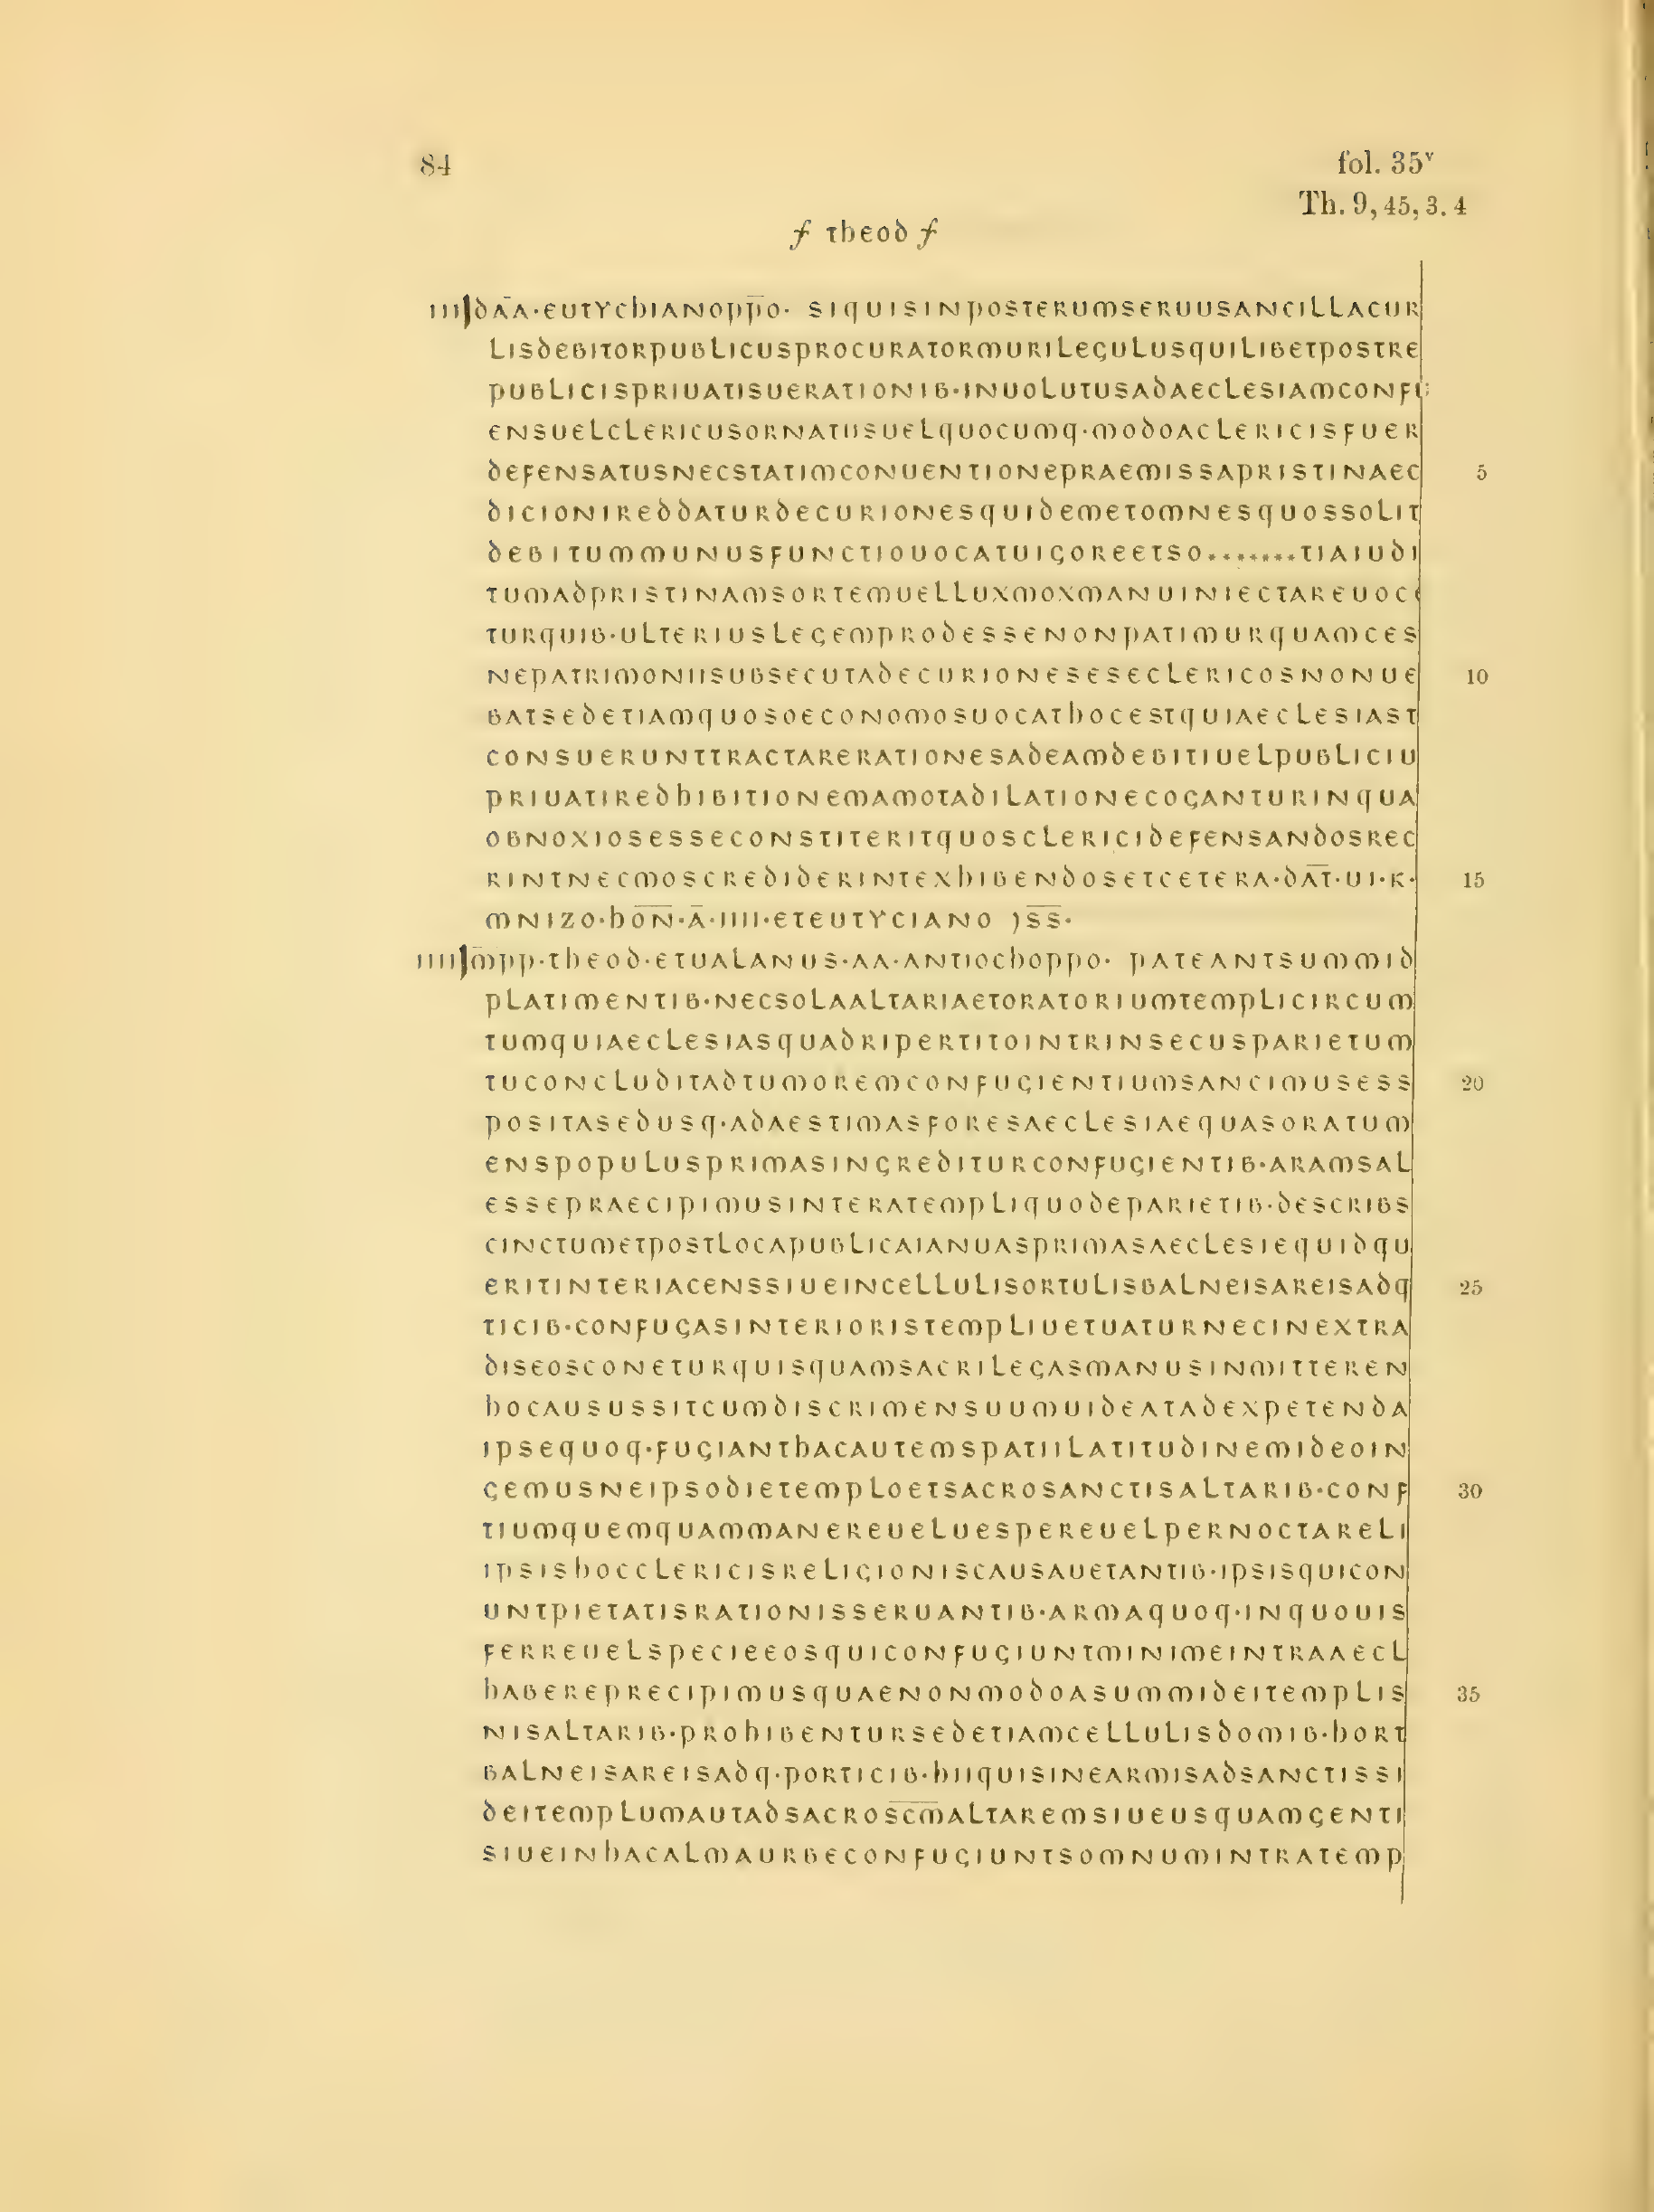 84
fol. 35v
Th. 9, 45, 3. 4
f theod f
III]dĀA·EUTYChIANOpp̄O· SIqUISINpOSTERUmSERUUSANCILLACUR
LISdEBITORpUBLICUSpROCURATORmURILEGULUSqUILIBETpOSTRE
pUBLICISpRIUATISUERATIONIB·INUOLUTUSAdAECLESIAmCONF
ENSUELCLERICUSORNATUSUELqUOCUmq·mOdOACLERICISFUER
dEFENSATUSNECSTATImCONUENTIONEpRAEmISSApRISTINAEC
5
dICIONIREddATURdECURIONESqUIdEmETOmNESqUOSSOLIT
dEBITUmmUNUSFUNCTIOUOCATUIGOREETSO........TIAIUdI
TUmAdpRISTINAmSORTEmUELLUXmOXmANUINIECTAREUOC
TURqUIB·ULTERIUSLEGEmpRODESSENONpATImURqUAmCES
NEpATRImONIISUBSECUTAdECURIONESESECLERICOSNONUE
10
BATSEdETIAmqUOSOECONOmOSUOCAThOCESTqUIAECLESIAST
CONSUERUNTTRACTARERATIONESAdEAmdEBITIUELpUBLICIU
pRIUATIREdhIBITIONEmAmOTAdILATIONECOGANTURINqUA
OBNOXIOSESSECONSTITERITqUOSCLERICIdEFENSANdOSREC
RINTNECmOSCREdIdERINTEXhIBENdOSETCETERA·dAT̄·UI·K·
15
mNIZO·hŌN̄·Ā·IIII·ETEUTYCIANO )S̄S̄·
IIII]m̄pp·ThEOd·ETUALANUS·AA·ANTIOChOppO· pATEANTSUmmId
pLATImENTIB·NECSOLAALTARIAETORATORIUmTEmpLICIRCUm
TUmqUIAECLESIASqUAdRIpERTITOINTRINSECUSpARIETUm
TUCONCLUdITAdTUmOREmCONFUGIENTIUmSANCImUSESS
20
pOSITASEdUSq·AdAESTImASFORESAECLESIAEqUASORATUm
ENSpOpULUSpRImASINGREdITURCONFUGIENTIB·ARAmSAL
ESSEpRAECIpImUSINTERATEmpLIqUOdEpARIETIB·dESCRIBS
CINCTUmETpOSTLOCApUBLICAIANUASpRImASAECLESIEqUIdqU
ERITINTERIACENSSIUEINCELLULISORTULISBALNEISAREISAdq
25
TICIB·CONFUGASINTERIORISTEmpLIUETUATURNECINEXTRA
dISEOSCONETURqUISqUAmSACRILEGASmANUSINmITTEREN
hOCAUSUSSITCUmdISCRImENSUUmUIdEATAdEXpETENdA
IpSEqUOq·FUGIANThACAUTEmSpATIILATITUdINEmIdEOIN
GEmUSNEIpSOdIETEmpLOETSACROSANCTISALTARIB·CONF
30
TIUmqUEmqUAmmANEREUELUESpEREUELpERNOCTARELI
IpSIShOCCLERICISRELIGIONISCAUSAUETANTIB·IpSISqUICON
UNTpIETATISRATIONISSERUANTIB·ARmAqUOq·INqUOUIS
FERREUELSpECIEEOSqUICONFUGIUNTmINImEINTRAAECL
hABEREpRECIpImUSqUAENONmOdOASUmmIdEITEmpLIS
35
NISALTARIB·pROhIBENTURSEdETIAmCELLULISdOmIB·hORT
BALNEISAREISAdq·pORTICIB·hIIqUISINEARmISAdSANCTISSI
dEITEmpLUmAUTAdSACROS̄C̄m̄ALTAREmSIUEUSqUAmGENTI
SIUEINhACALmAURBECONFUGIUNTSOmNUmINTRATEmp